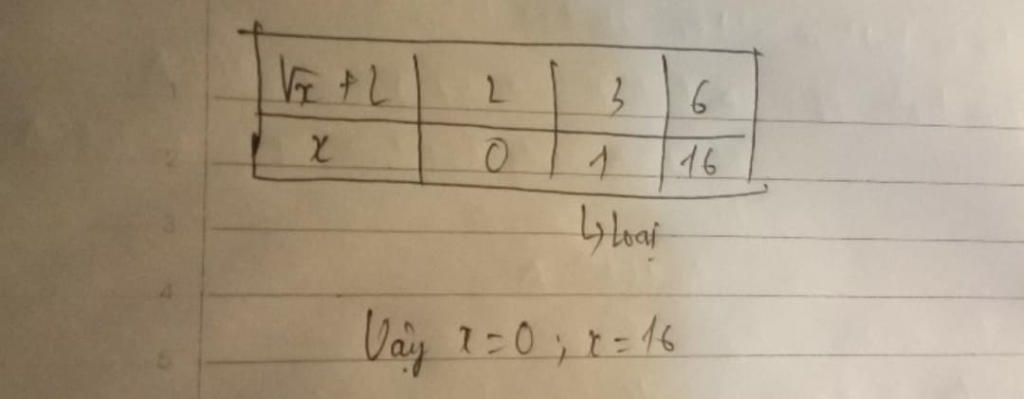 √x + 2 2 3 6
x 0 1 16
↳ Loại
Vậy x = 0 ; x = 16
1
2
3
4
5